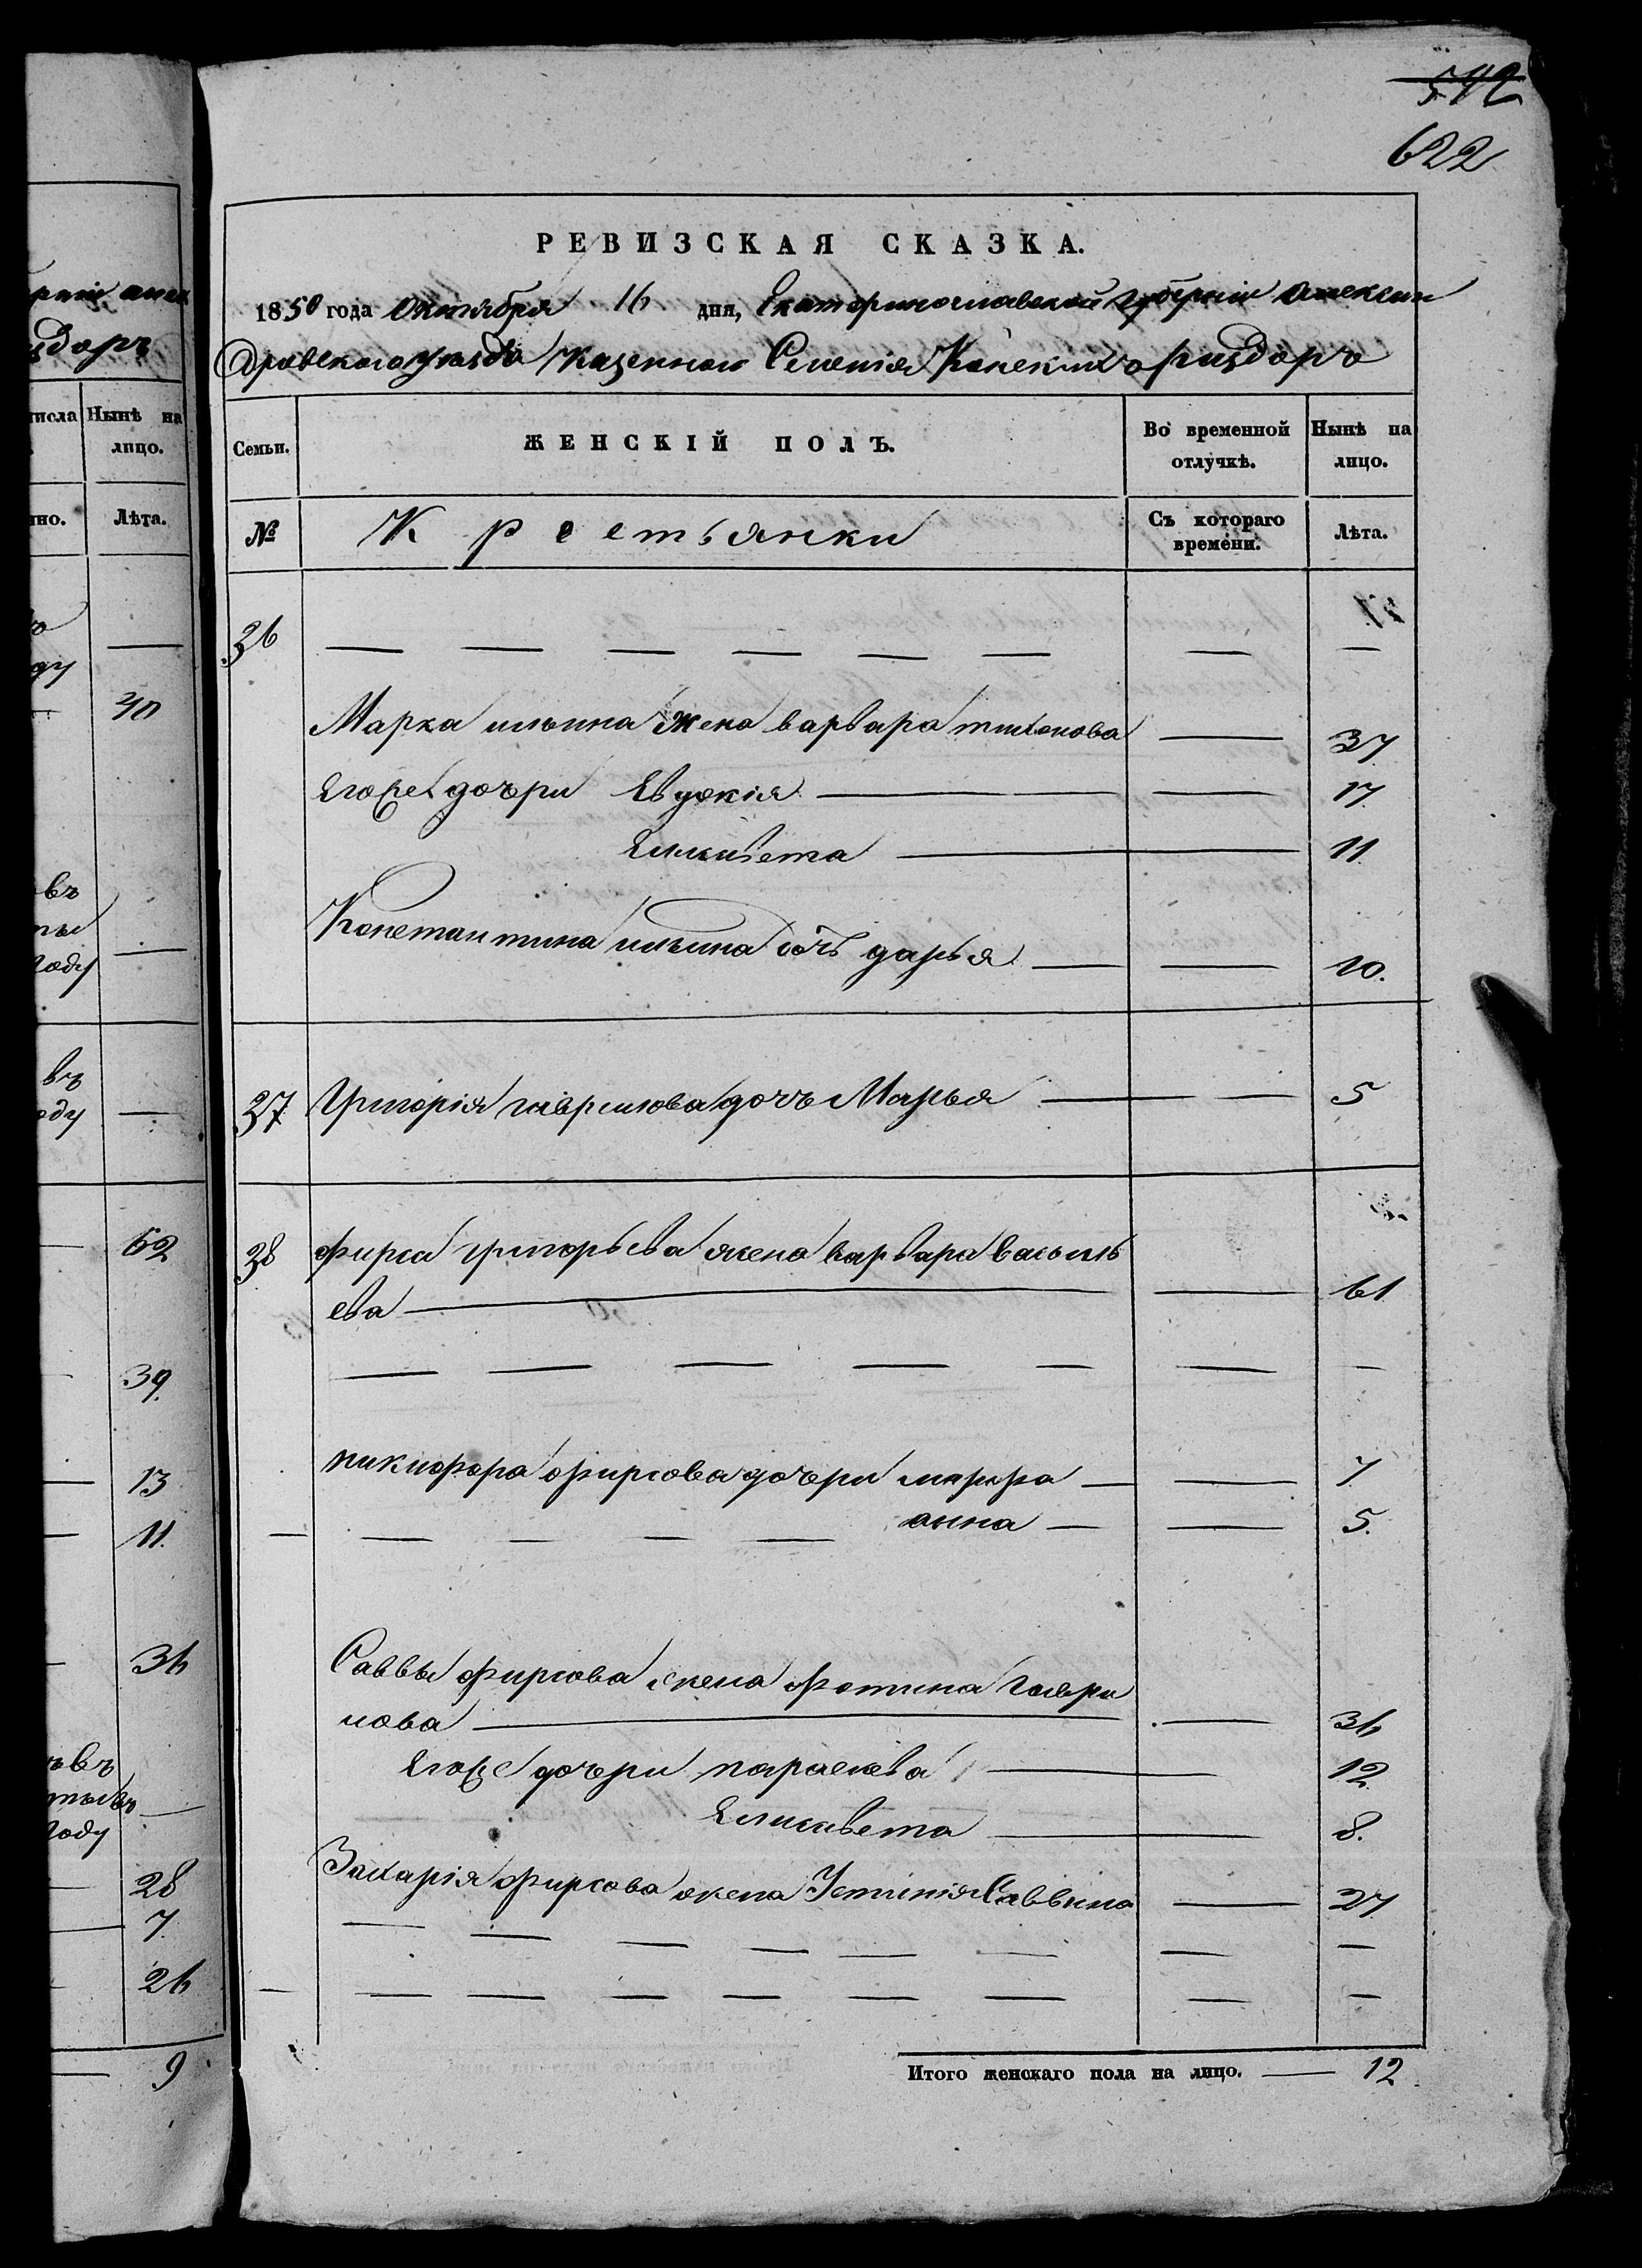 542
622
РЕВИЗСКАЯ СКАЗКА.
1850 года Октября 16 дня, Екатеринославской губернии Алексан
дровского уезда казенного Селения Конских раздоръ
Семьи. ЖЕНСКІЙ ПОЛЪ. Во временной отлучкѣ. Нынѣ на лицо.
№ Крестьянки Съ котораго времени. Лѣта.
36 — — — — — — — —
Марка ильина жена варвара тихонова — 37
Его дочери Евдокія — — 17
Елисавета — — 11
Константина ильина дочь дарья — — 10.
37 Григорія гаврилова дочь Марья — — 5
38 фирса григорьева жена варвара василь
ева — — 61
— — — — — — —
никифора фирсова дочери марфа — — 7
— — — — — анна — — 5.
Саввы фирсова жена фотина гаври
лова — — 36
Его дочери параскева — 12
Елисавета — 8.
Захарія фирсова жена Устинія Саввина — 27
— — — — — — — —
— — — — — — — — —
Итого женскаго пола на лицо. — 12
здоръ
числа Нынѣ на лицо.
Лѣта.
ду
40
въ
году
въ
оду
62
39.
13
11.
36
въ
году
28
7.
26
9